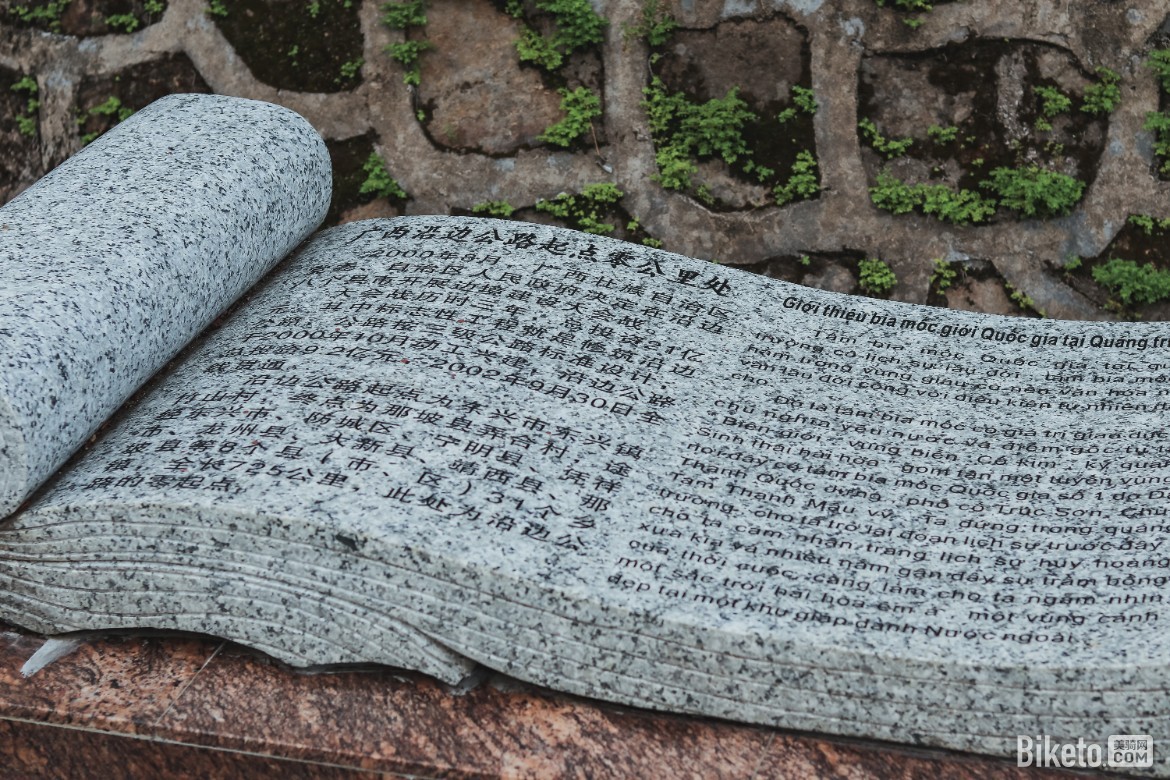 广西沿边公路起点零公里处
2000年9月，广西壮族自治区
党委、自治区人民政府决定在沿边
八个县市开展边境建设大会战，
大会战历时三年，总投资21亿
元，其中标志性工程就是修筑沿边
公路。公路按三级公路标准设计，
于2000年10月动工兴建，沿边公路
总投资9.2亿元，2002年9月30日全
线贯通。
沿边公路起点为东兴市东兴镇
竹山村，终点为那坡县弄合村，途
经东兴市、防城区、宁明县、凭祥
市、龙州县、大新县、靖西县、那
坡县等8个县（市、区）31个乡
镇，全长725公里，此处为沿边公
路的零起点。
Giới thiệu bia mốc giới Quốc gia tại Quảng
Tấm bia mốc Quốc gia tại
trường có lịch sử lâu đời
nằm trong vùng giàu có nền văn hóa
lâu đời cộng với điều kiện tự nhiên
cho.
Đó là tấm bia mốc có giá trị giáo dục
chủ nghĩa yêu nước và điểm gốc
Biên giới vùng biển
Sinh thái hài hòa, gồm tận một tuyến vùng
nơi đây có tấm bia mốc Quốc gia số 1 do
Thanh Quốc dựng, phố cổ Trúc Sơn,
Tam Thanh Mẫu v.v. Ta đứng trong quảng
trường, cho ta trở lại đoạn lịch sử trước đây
cho ta cảm nhận trang lịch sử huy hoàng
xưa kia và nhiều năm gần đây sự trầm bổng
của thời cuộc, càng làm cho ta ngắm nhìn
một sắc trời hài hòa êm ả, một vùng cảnh
đẹp tại một khu giáp danh Nước ngoài.
Biketo 美骑网 .COM